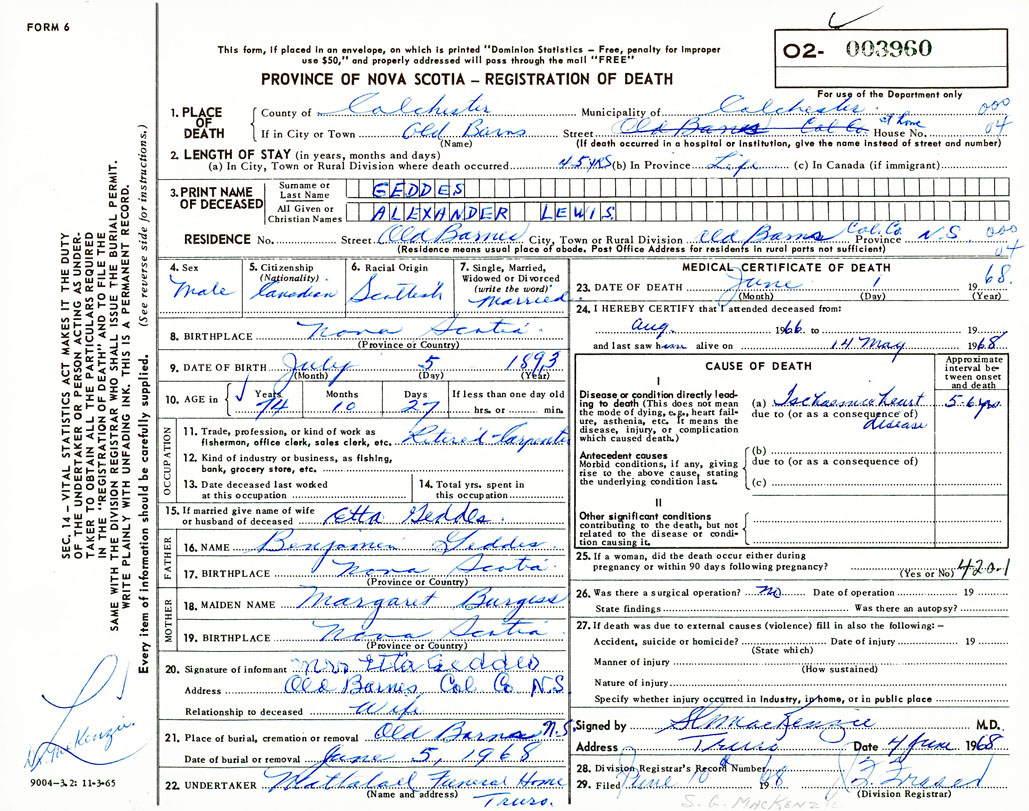 FORM 6
O2- 003960
This form, if placed in an envelope, on which is printed "Dominion Statistics — Free, penalty for improper
use $50," and properly addressed will pass through the mail "FREE"
PROVINCE OF NOVA SCOTIA — REGISTRATION OF DEATH
For use of the Department only
1. PLACE OF DEATH
County of Colchester Municipality of Colchester. 000
If in City or Town Old Barns Street Old Barns Col Co. At home House No. 04
(Name) (If death occurred in a hospital or institution, give the name instead of street and number)
2. LENGTH OF STAY (in years, months and days)
(a) In City, Town or Rural Division where death occurred 45 yrs (b) In Province Life (c) In Canada (if immigrant)
3. PRINT NAME OF DECEASED
Surname or Last Name GEDDES
All Given or Christian Names ALEXANDER LEWIS
RESIDENCE No. Street Old Barnes City, Town or Rural Division Old Barns Col. Co. Province N.S. 000
(Residence means usual place of abode. Post Office Address for residents in rural parts not sufficient) 04
4. Sex Male
5. Citizenship (Nationality) Canadian
6. Racial Origin Scottish
7. Single, Married, Widowed or Divorced (write the word) Married
8. BIRTHPLACE Nova Scotia
(Province or Country)
9. DATE OF BIRTH July 5 1893
(Month) (Day) (Year)
10. AGE in Years 74 Months 10 Days 27 If less than one day old hrs. or min.
OCCUPATION
11. Trade, profession, or kind of work as
fisherman, office clerk, sales clerk, etc. Retired-Carpenter
12. Kind of industry or business, as fishing,
bank, grocery store, etc.
13. Date deceased last worked
at this occupation
14. Total yrs. spent in
this occupation
15. If married give name of wife
or husband of deceased Etta Geddes.
FATHER
16. NAME Benjamin Geddes
17. BIRTHPLACE Nova Scotia
(Province or Country)
MOTHER
18. MAIDEN NAME Margaret Burgess
19. BIRTHPLACE Nova Scotia
(Province or Country)
20. Signature of informant Mrs Etta Geddes
Address Old Barnes Col Co N.S
Relationship to deceased Wife
21. Place of burial, cremation or removal Old Barns N.S.
Date of burial or removal June 5, 1968
22. UNDERTAKER Mattatall Funeral Home
(Name and address) Truro.
MEDICAL CERTIFICATE OF DEATH
23. DATE OF DEATH June 1 19 68.
(Month) (Day) (Year)
24. I HEREBY CERTIFY that I attended deceased from:
Aug. 1966 to 19
and last saw him alive on 14 May 1968
CAUSE OF DEATH
Approximate interval between onset and death
I
Disease or condition directly leading to death (This does not mean the mode of dying, e.g., heart failure, asthenia, etc. It means the disease, injury, or complication which caused death.)
(a) Ischaemic heart disease 5-6 yrs
due to (or as a consequence of)
Antecedent causes
Morbid conditions, if any, giving rise to the above cause, stating the underlying condition last.
(b)
due to (or as a consequence of)
(c)
II
Other significant conditions
contributing to the death, but not related to the disease or condition causing it.
25. If a woman, did the death occur either during
pregnancy or within 90 days following pregnancy?
(Yes or No) 420.1
26. Was there a surgical operation? No Date of operation 19
State findings Was there an autopsy?
27. If death was due to external causes (violence) fill in also the following: —
Accident, suicide or homicide? Date of injury 19
(State which)
Manner of injury
(How sustained)
Nature of injury
Specify whether injury occurred in industry, in home, or in public place
Signed by SGMacKenzie M.D.
Address Truro Date 4 June 1968
28. Division Registrar's Record Number
29. Filed June 10th 19 68 Fraser
(Division Registrar)
S. G. MACKENZIE
SEC. 14 — VITAL STATISTICS ACT MAKES IT THE DUTY
OF THE UNDERTAKER OR PERSON ACTING AS UNDER-
TAKER TO OBTAIN ALL THE PARTICULARS REQUIRED
IN THE "REGISTRATION OF DEATH" AND TO FILE THE
SAME WITH THE DIVISION REGISTRAR WHO SHALL ISSUE THE BURIAL PERMIT.
WRITE PLAINLY WITH UNFADING INK. THIS IS A PERMANENT RECORD.
Every item of information should be carefully supplied. (See reverse side for instructions.)
MacKenzie.
9004-3.2: 11-3-65